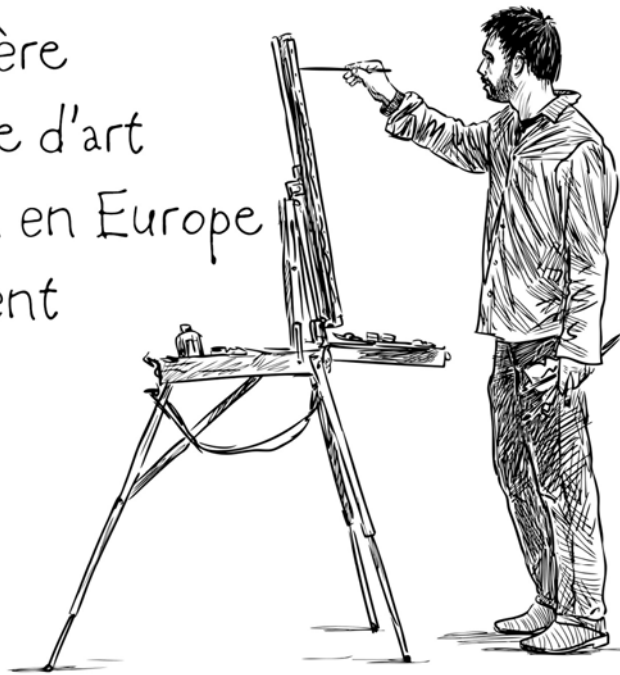 ère
e d'art
en Europe
ent